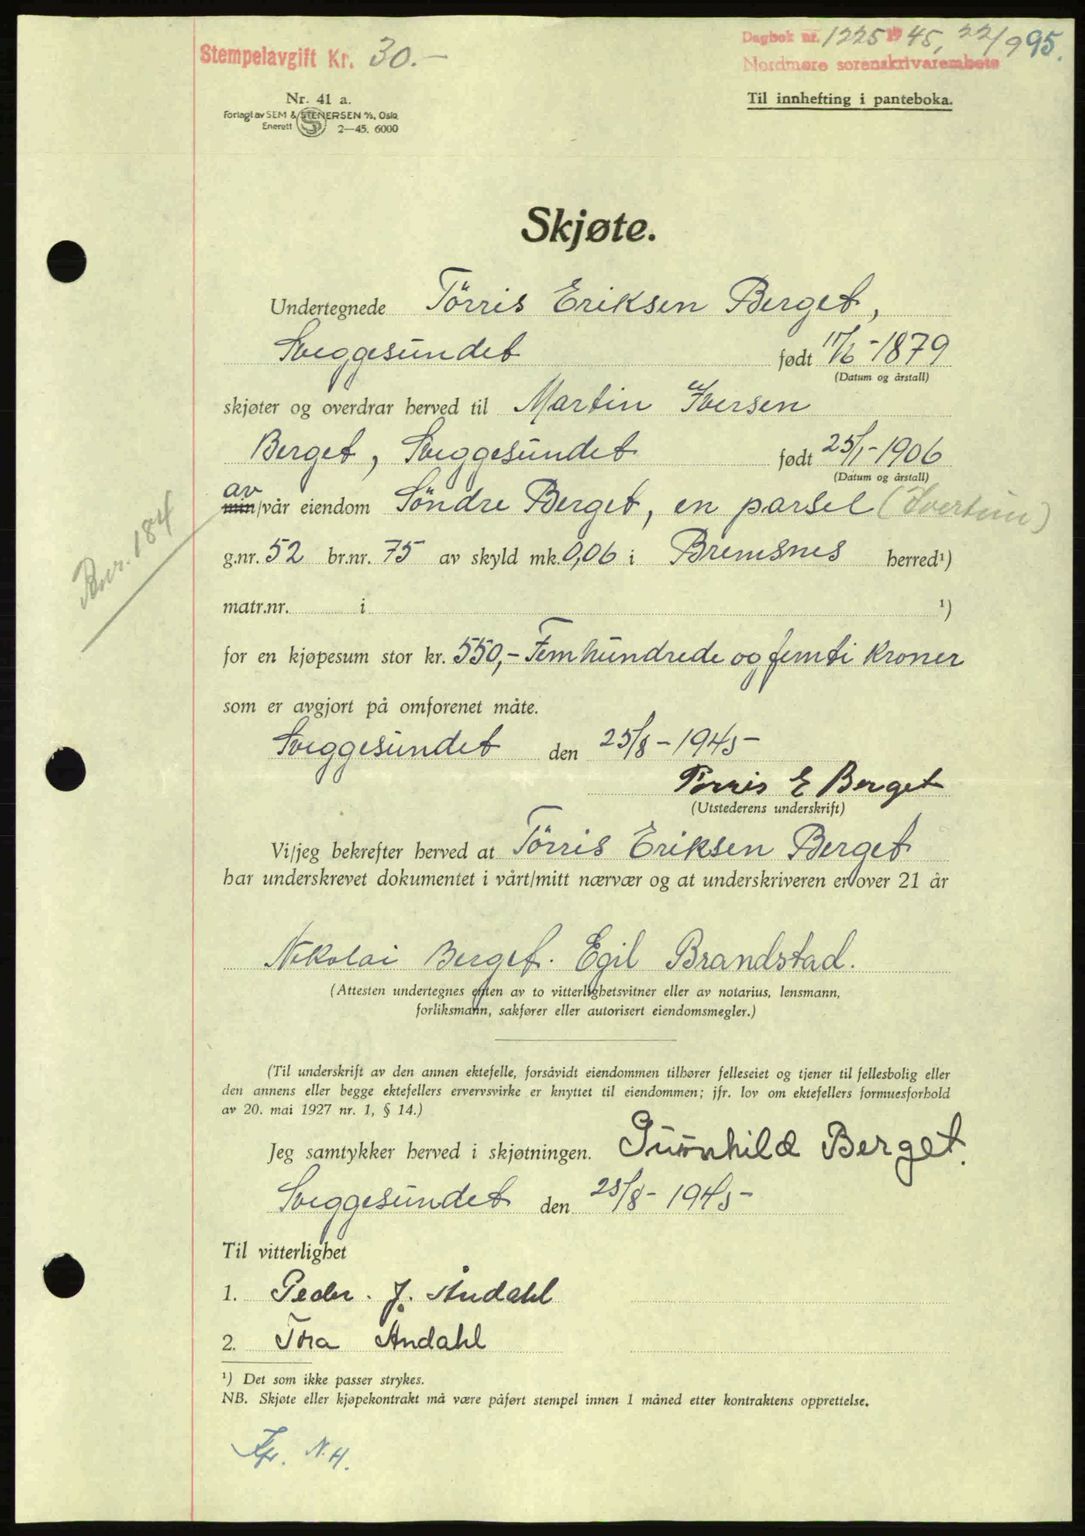 Stempelavgift Kr. 30.-
Dagbok nr. 1225 1945, 22/9 95.
Nordmøre sorenskrivarembete
Nr. 41 a.
Forlagt av SEM & STENERSEN A/S, Oslo
Enerett 2—45. 6000
Til innhefting i panteboka.
Skjøte.
Undertegnede Tørris Eriksen Berget,
Sveggesundet født 11/6-1879
(Datum og årstall)
skjøter og overdrar herved til Martin Iversen
Berget, Sveggesundet født 25/1-1906
(Datum og årstall)
av
min/vår eiendom Søndre Berget, en parsel
g.nr. 52 br.nr. 75 av skyld mk. 0,06 i Bremsnes herred¹)
Bnr. 184
matr.nr. i ¹)
for en kjøpesum stor kr. 550,- Femhundrede og femti Kroner
som er avgjort på omforenet måte.
Sveggesundet den 25/8-1945-
Tørris E Berget
(Utstederens underskrift)
Vi/jeg bekrefter herved at Tørris Eriksen Berget
har underskrevet dokumentet i vårt/mitt nærvær og at underskriveren er over 21 år
Nikolai Berget. Egil Brandstad.
(Attesten undertegnes enten av to vitterlighetsvitner eller av notarius, lensmann,
forliksmann, sakfører eller autorisert eiendomsmegler.)
(Til underskrift av den annen ektefelle, forsåvidt eiendommen tilhører felleseiet og tjener til fellesbolig eller
den annens eller begge ektefellers ervervsvirke er knyttet til eiendommen; jfr. lov om ektefellers formuesforhold
av 20. mai 1927 nr. 1, § 14.)
Jeg samtykker herved i skjøtningen. Gunhild Berget.
Sveggesundet den 25/8-1945-
Til vitterlighet
1. Peder. J. Åndahl
2. Tora Åndahl
¹) Det som ikke passer strykes.
NB. Skjøte eller kjøpekontrakt må være påført stempel innen 1 måned etter kontraktens opprettelse.
N. H.